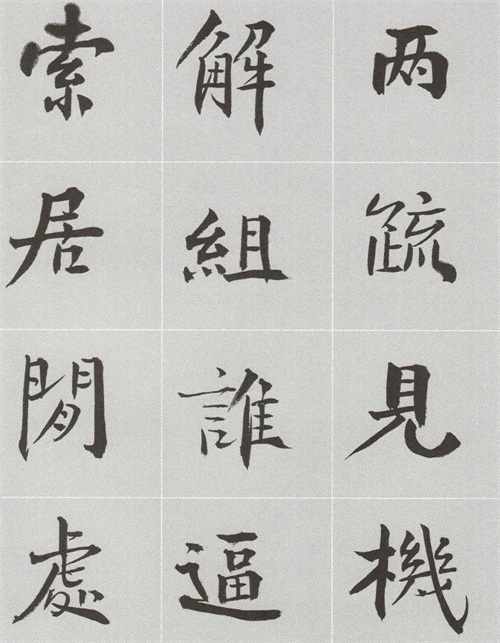 两疏見機
解組誰逼
索居閒處